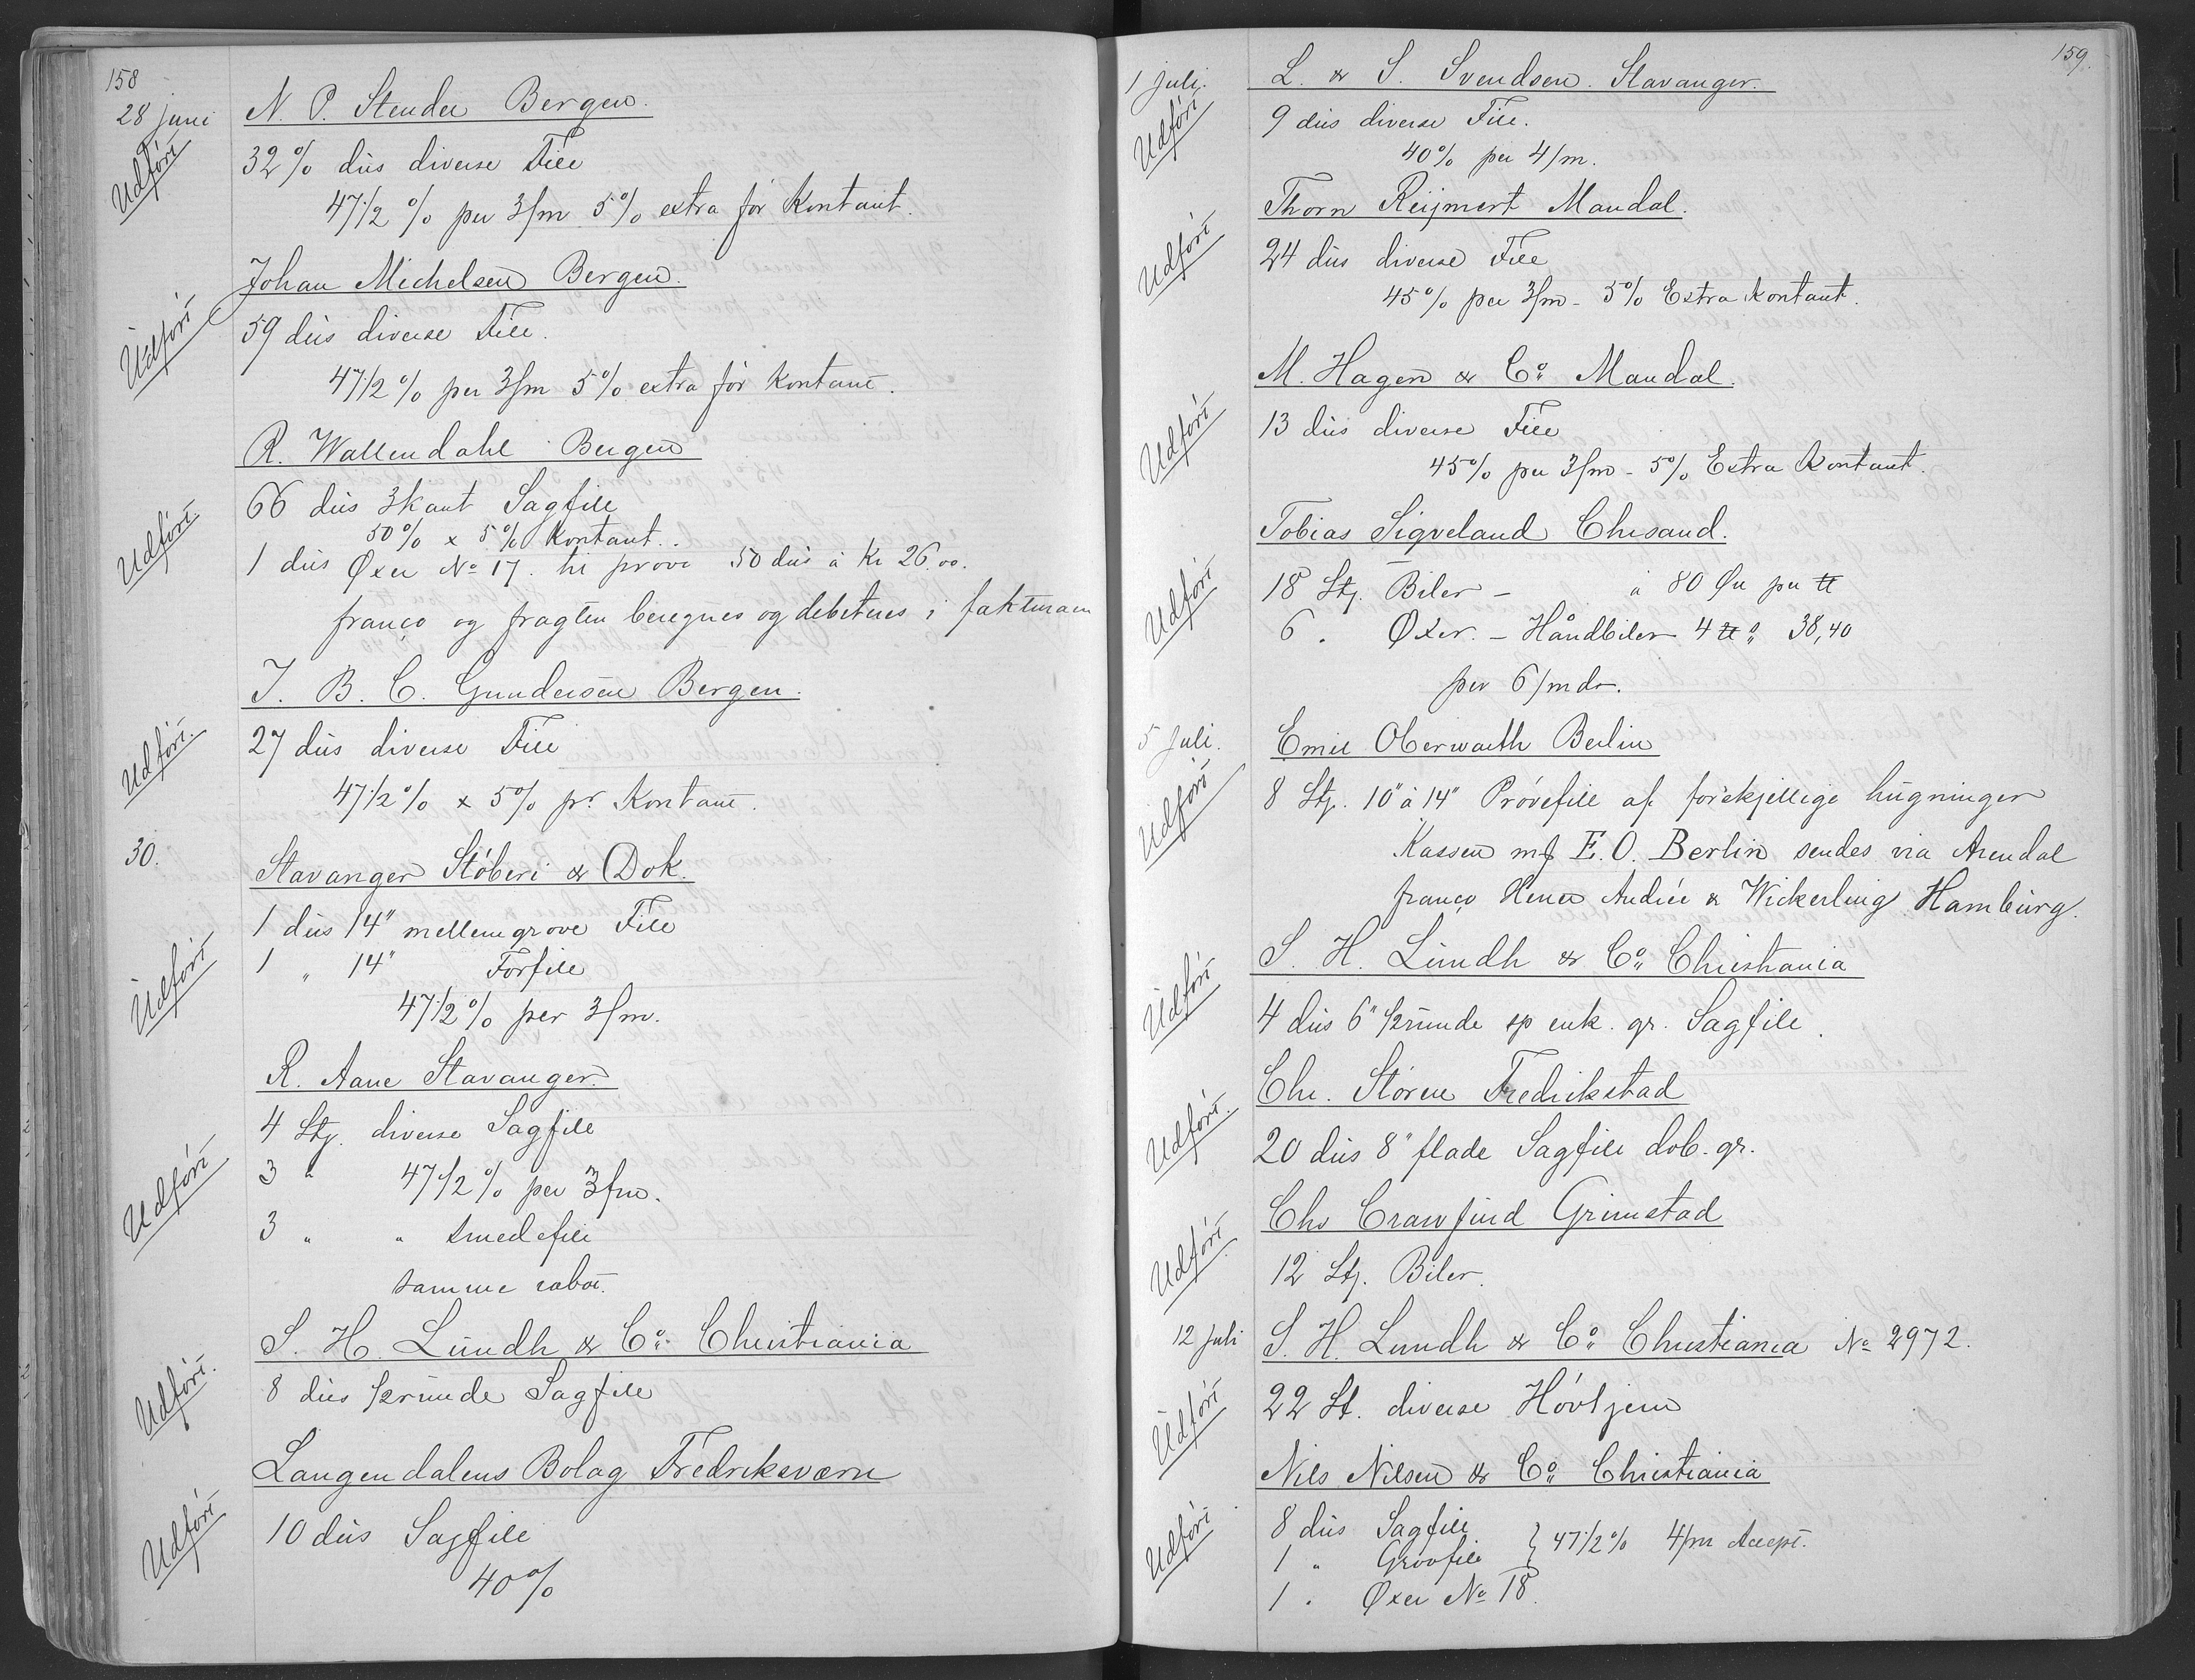 158
28 juni N. P. Stender Bergen.
Udført 32% dus diverse File
47 1/2 % per 3/m 5% extra for Kontant.
Johan Michelsen Bergen.
Udført 59 dus diverse File.
47 1/2 % per 3/m 5% extra for Kontant.
R. Wallendahl Bergen
66 dus 3kant Sagfile
50% x 5% Kontant.
Udført 1 dus Øxer No 17. til prøve 50 dus à Kr 26.00.
franço og fragten beregnes og debiteres i fakturaen
J. B. C. Gundersen Bergen.
Udført. 27 dus diverse File
47 1/2 % x 5% pr Kontant.
30. Stavanger Støberi & Dok.
1 dus 14" mellemgrove File
Udført 1 " 14" Forfile
47 1/2 % per 3/m.
R. Aane Stavanger.
4 Stj. diverse Sagfile
Udført 3 " 47 1/2 % per 3/m.
3 " " Smedefile
samme rabat.
S. H. Lundh & Co. Christiania
Udført. 8 dus 1/2runde Sagfile
Langendalens Bolag Fredriksværn
Udført 10 dus Sagfile
40%
159.
1 juli. L. & S. Svendsen. Stavanger.
Udført 9 dus diverse File.
40% per 4/m.
Thorn Reijmert Mandal.
Udført 24 dus diverse File
45% per 3/m - 5% Extra Kontant.
M. Hagen & Co Mandal.
Udført 13 dus diverse File
45% per 3/m - 5% Extra Kontant.
Tobias Sigveland Chrsand.
Udført 18 Stj. Biler - à 80 Øre per ℔
6 . Øxer. - Håndbiler 4 ℔ à 38,40
per 6/mdr.
5 Juli. Emil Oberwarth Berlin
Udført 8 Stj. 10" à 14" Prøvefile af forskjellige hugninger
Kassen mf E. O. Berlin sendes via Arendal
franço Herrer Andree & Wickerling Hamburg.
S. H. Lundh & Co Christiania
Udført 4 dus 6" 1/2runde sp enk. gr. Sagfile.
Chr. Støren Fredrikstad
Udført. 20 dus 8" flade Sagfile dob. gr.
Chr Crawfurd Grimstad
Udført 12 Stj. Biler.
12 Juli S. H. Lundh & Co Christiania No 2972.
Udført 22 St. diverse Høvljern
Nils Nilsen & Co Christiania
8 dus Sagfile
Udført 1 " Grovfile } 47 1/2 % 4/m Accept.
1 " Øxer No 18.